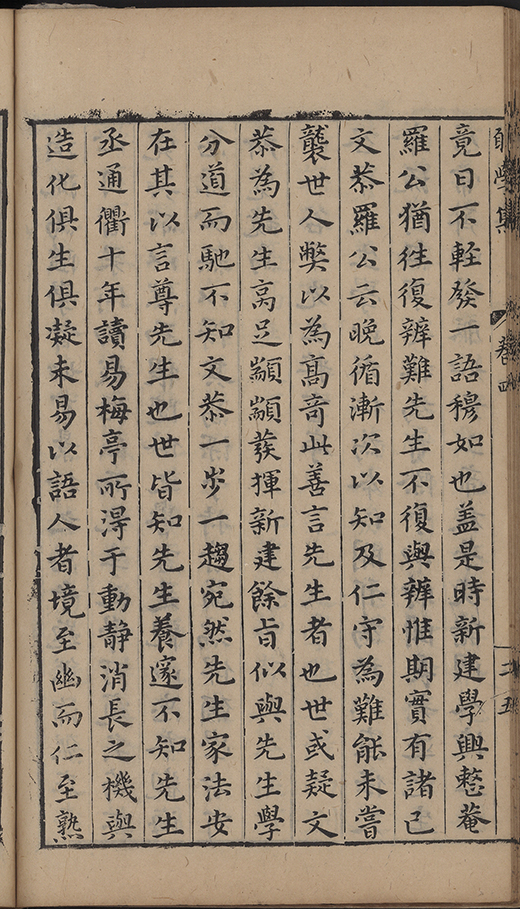 願學集 卷四 二五
竟日不輕發一語穆如也盖是時新建學興整菴
羅公猶徃復辨難先生不復與辨惟期實有諸己
文恭羅公云晚循漸次以知及仁守為難能未嘗
襲世人獘以為高奇此善言先生者也世或疑文
恭為先生高足顓顓發揮新建餘旨似與先生學
分道而馳不知文恭一步一趨宛然先生家法安
在其以言尊先生也世皆知先生養邃不知先生
丞通衢十年讀易梅亭所得于動靜消長之機與
造化俱生俱凝未易以語人者境至幽而仁至熟